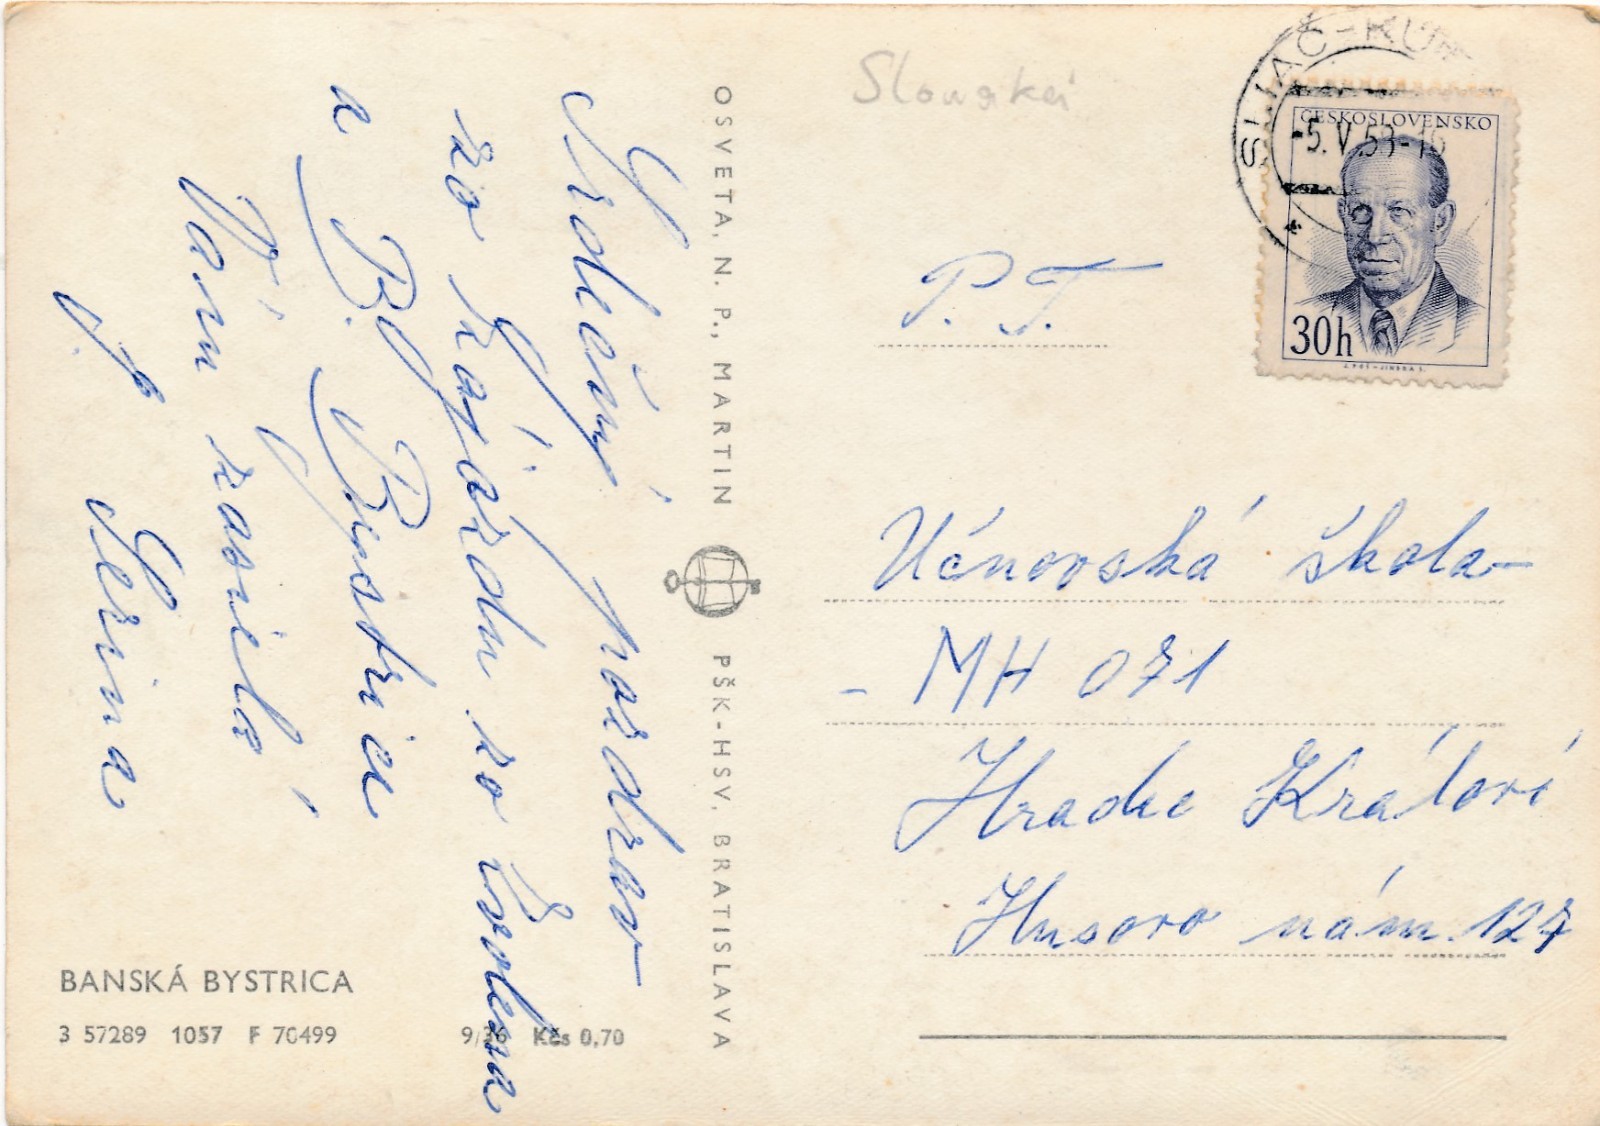 Srdečný pozdrav
zo zájazdu zo Zvolena
a B. Bystrice
Vám zasiela
J. Serina
OSVETA, N. P., MARTIN
PŠK-HSV, BRATISLAVA
BANSKÁ BYSTRICA
3 57289 1057 F 70499
9/36 Kčs 0,70
SLIAČ-KÚP
-5. V. 58-16
ČESKOSLOVENSKO
30h
P. T.
Učňovská škola-
- MH 071
Hradec Králové
Husovo nám. 127